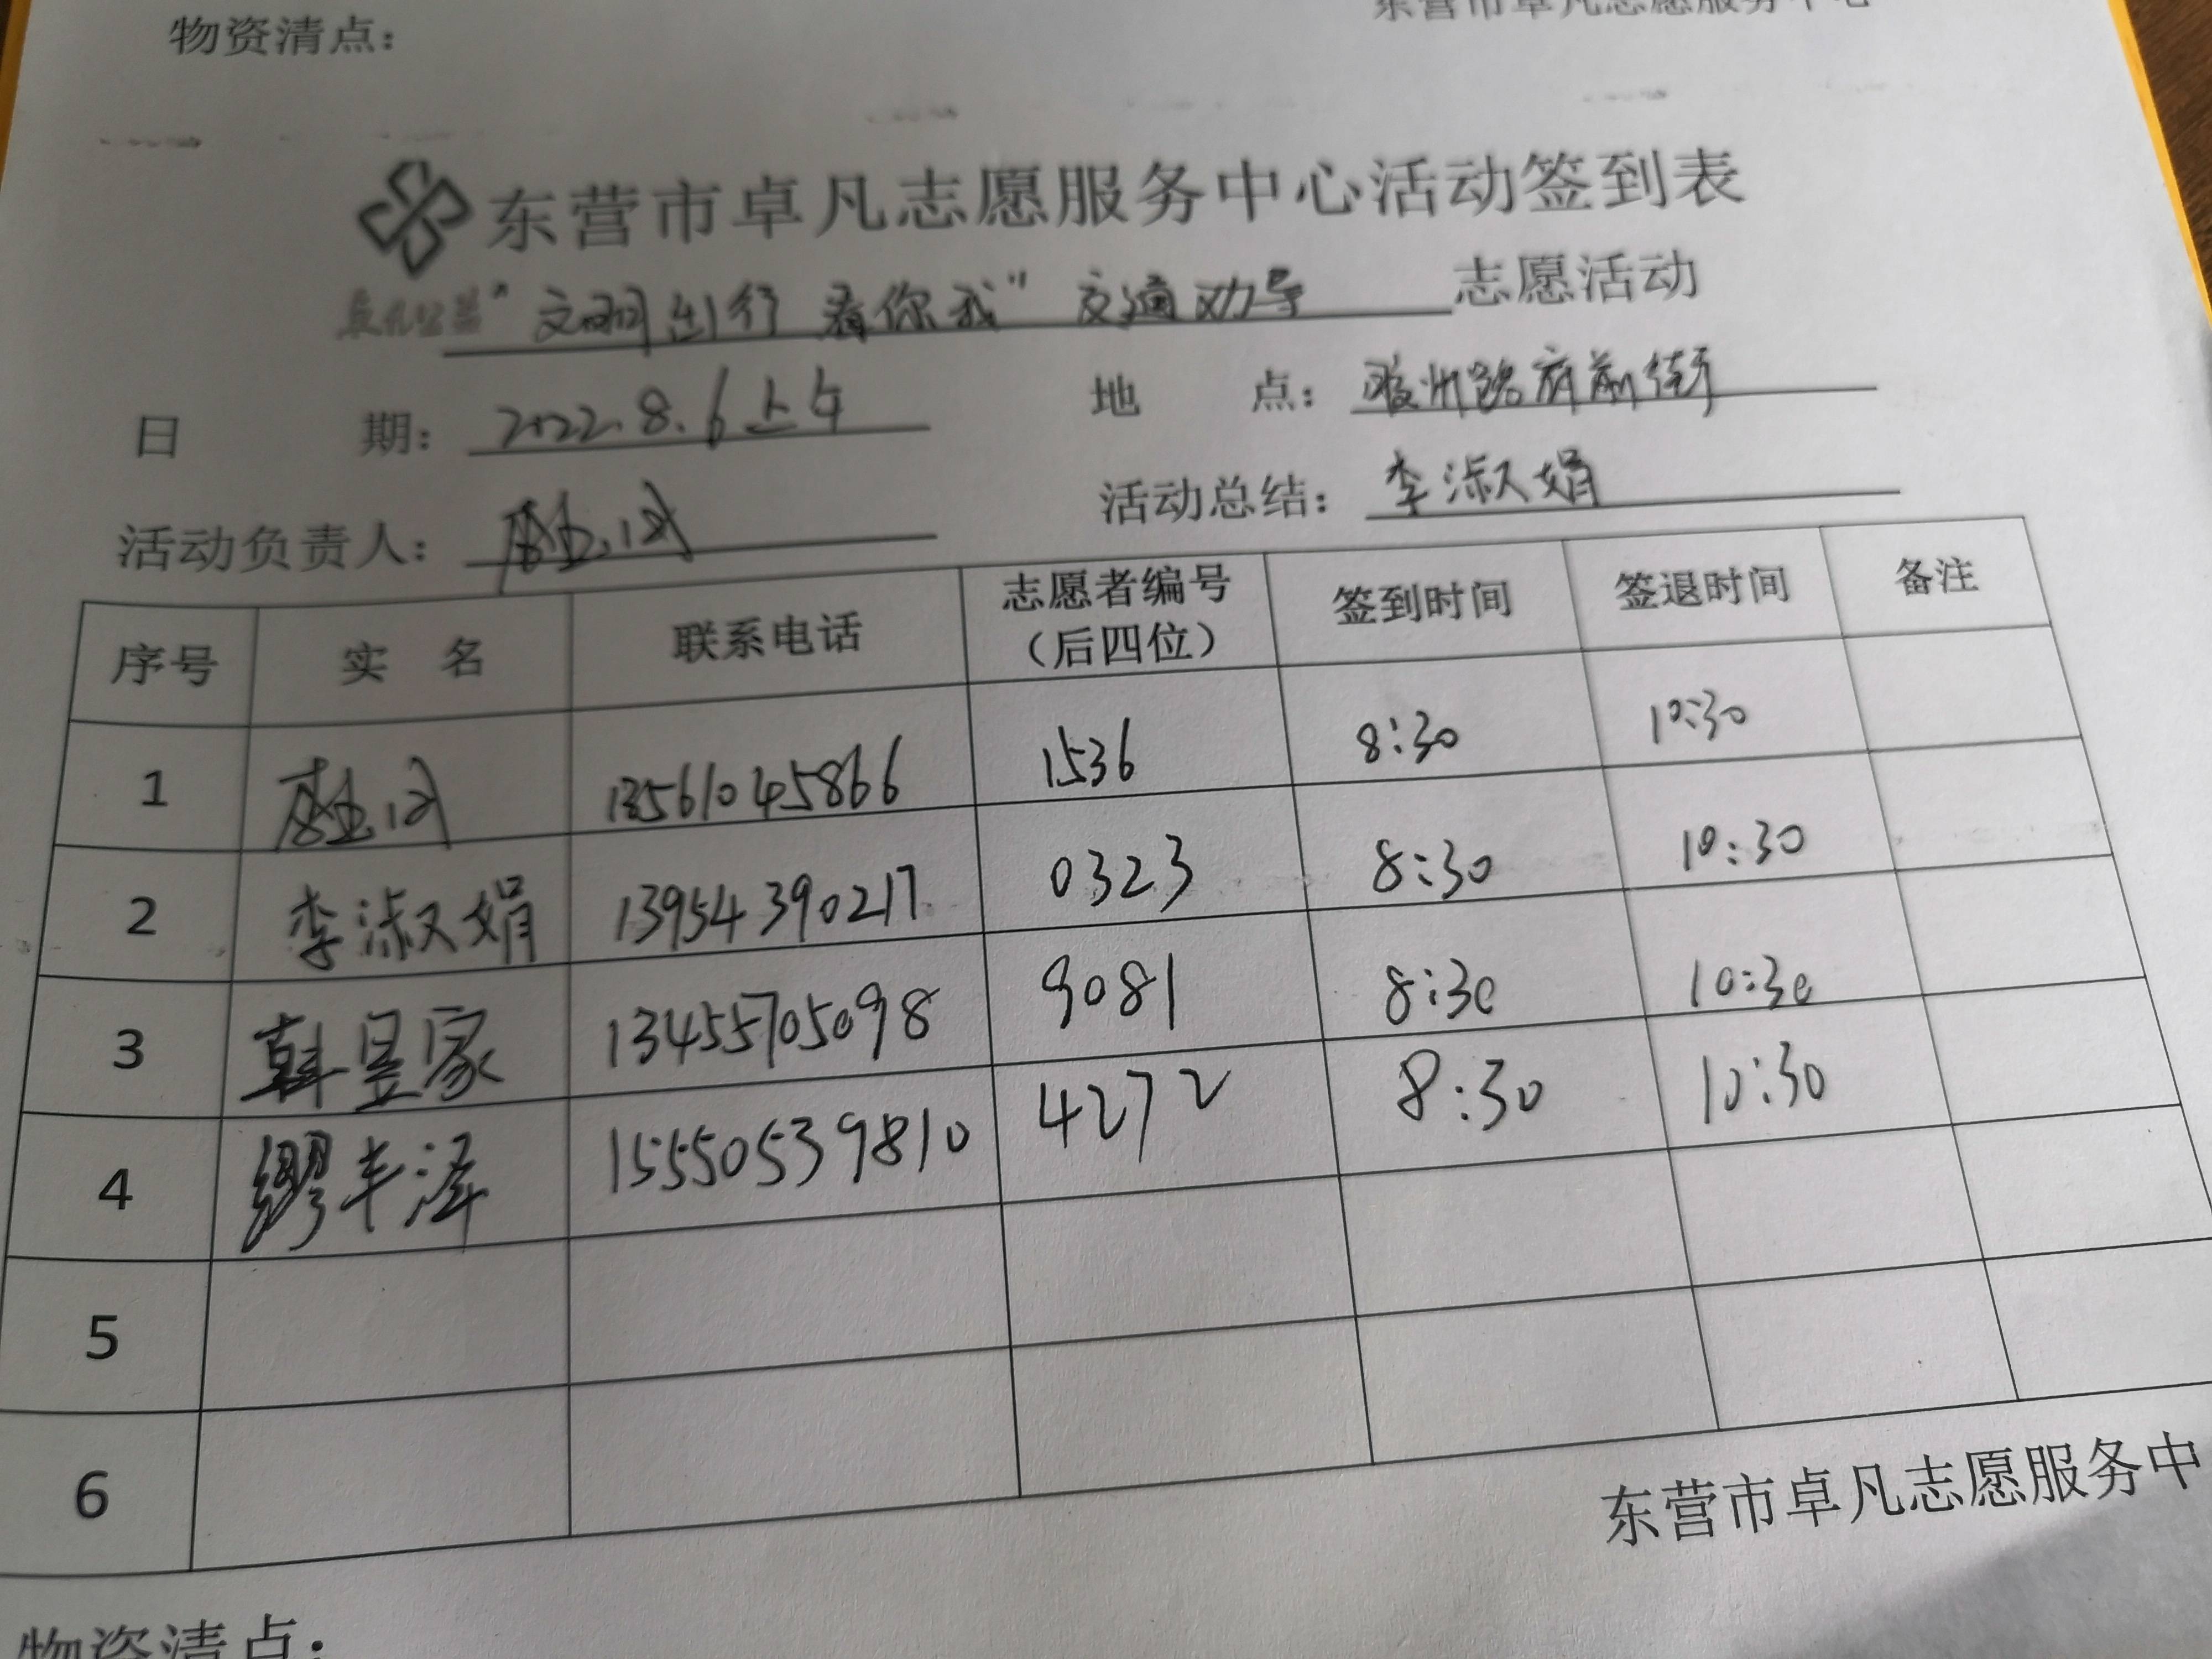 物资清点： 东营市卓凡志愿服务中心
东营市卓凡志愿服务中心活动签到表
卓凡公益"文明出行 看你我"交通劝导 志愿活动
日 期： 2022.8.6上午 地 点： 胶州路府前街
活动负责人： 活动总结： 李淑娟
序号 实 名 联系电话 志愿者编号（后四位） 签到时间 签退时间 备注
1 13561045866 1536 8:30 10:30
2 李淑娟 13954390217 0323 8:30 10:30
3 韩昱家 13455705098 9081 8:30 10:30
4 缪丰泽 15550539810 4272 8:30 10:30
5
6
东营市卓凡志愿服务中
物资清点：